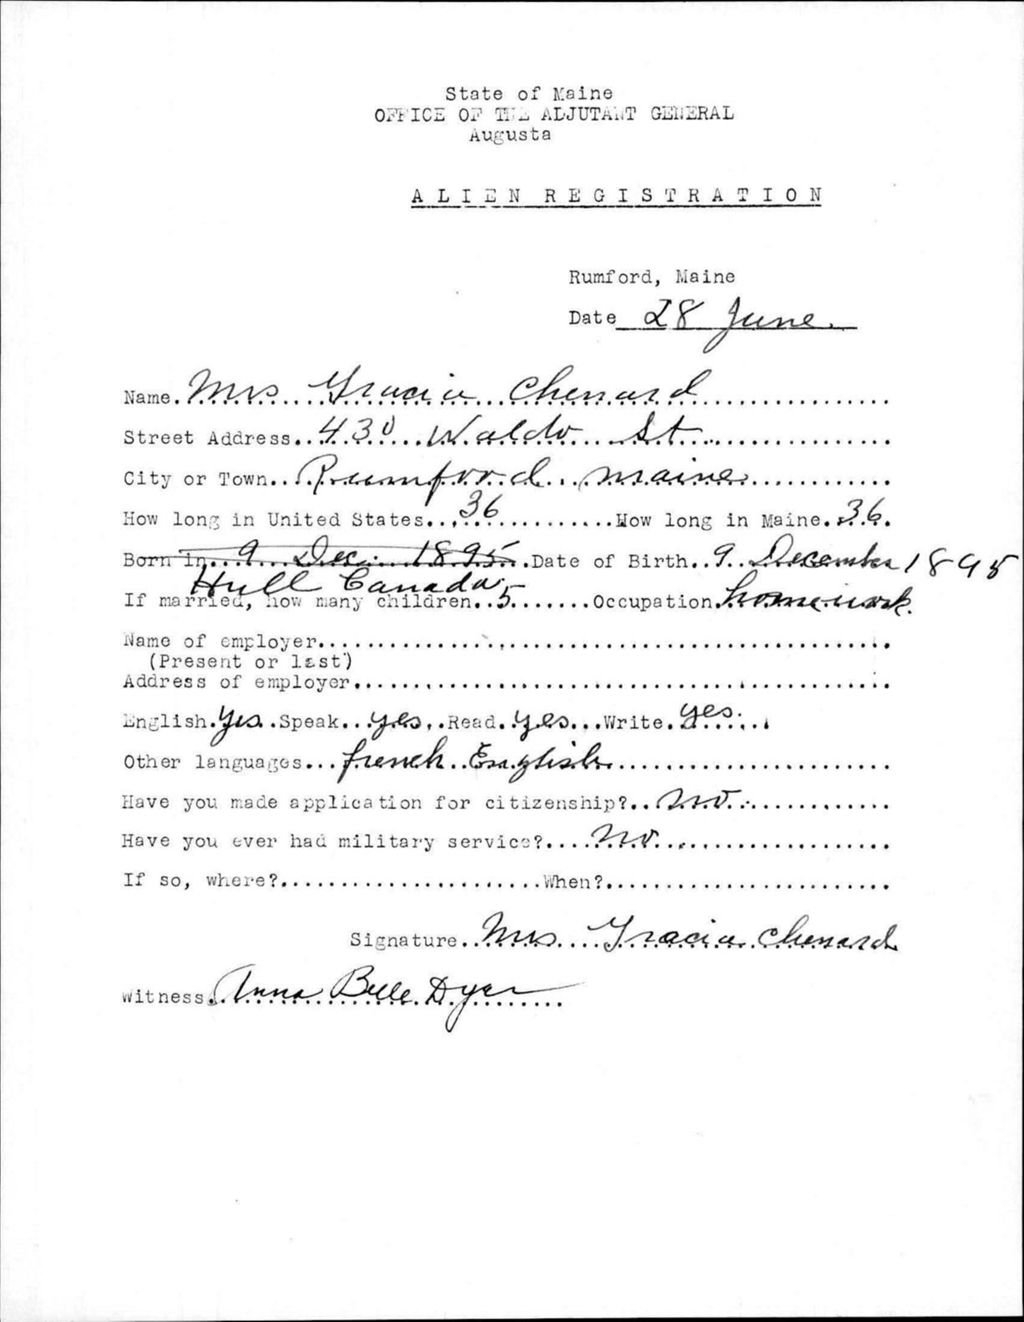 State of Maine
OFFICE OF THE ADJUTANT GENERAL
Augusta
ALIEN REGISTRATION
Rumford, Maine
Date 28 June.
Name. Mrs Gracia Chenard
Street Address. 430 Waldo St.
City or Town. Rumford Maine
How long in United States. 36 How long in Maine. 36.
Born in 9 Dec. 1895 Date of Birth. 9 December 1895
Hull Canada
If married, how many children. 5 Occupation. homework.
Name of employer
(Present or last)
Address of employer
English. Yes. Speak. yes. Read. yes. Write. yes.
Other languages. french English
Have you made application for citizenship? no.
Have you ever had military service? no.
If so, where? When?
Signature. Mrs Gracia Chenard
Witness. Anna Belle Dyer